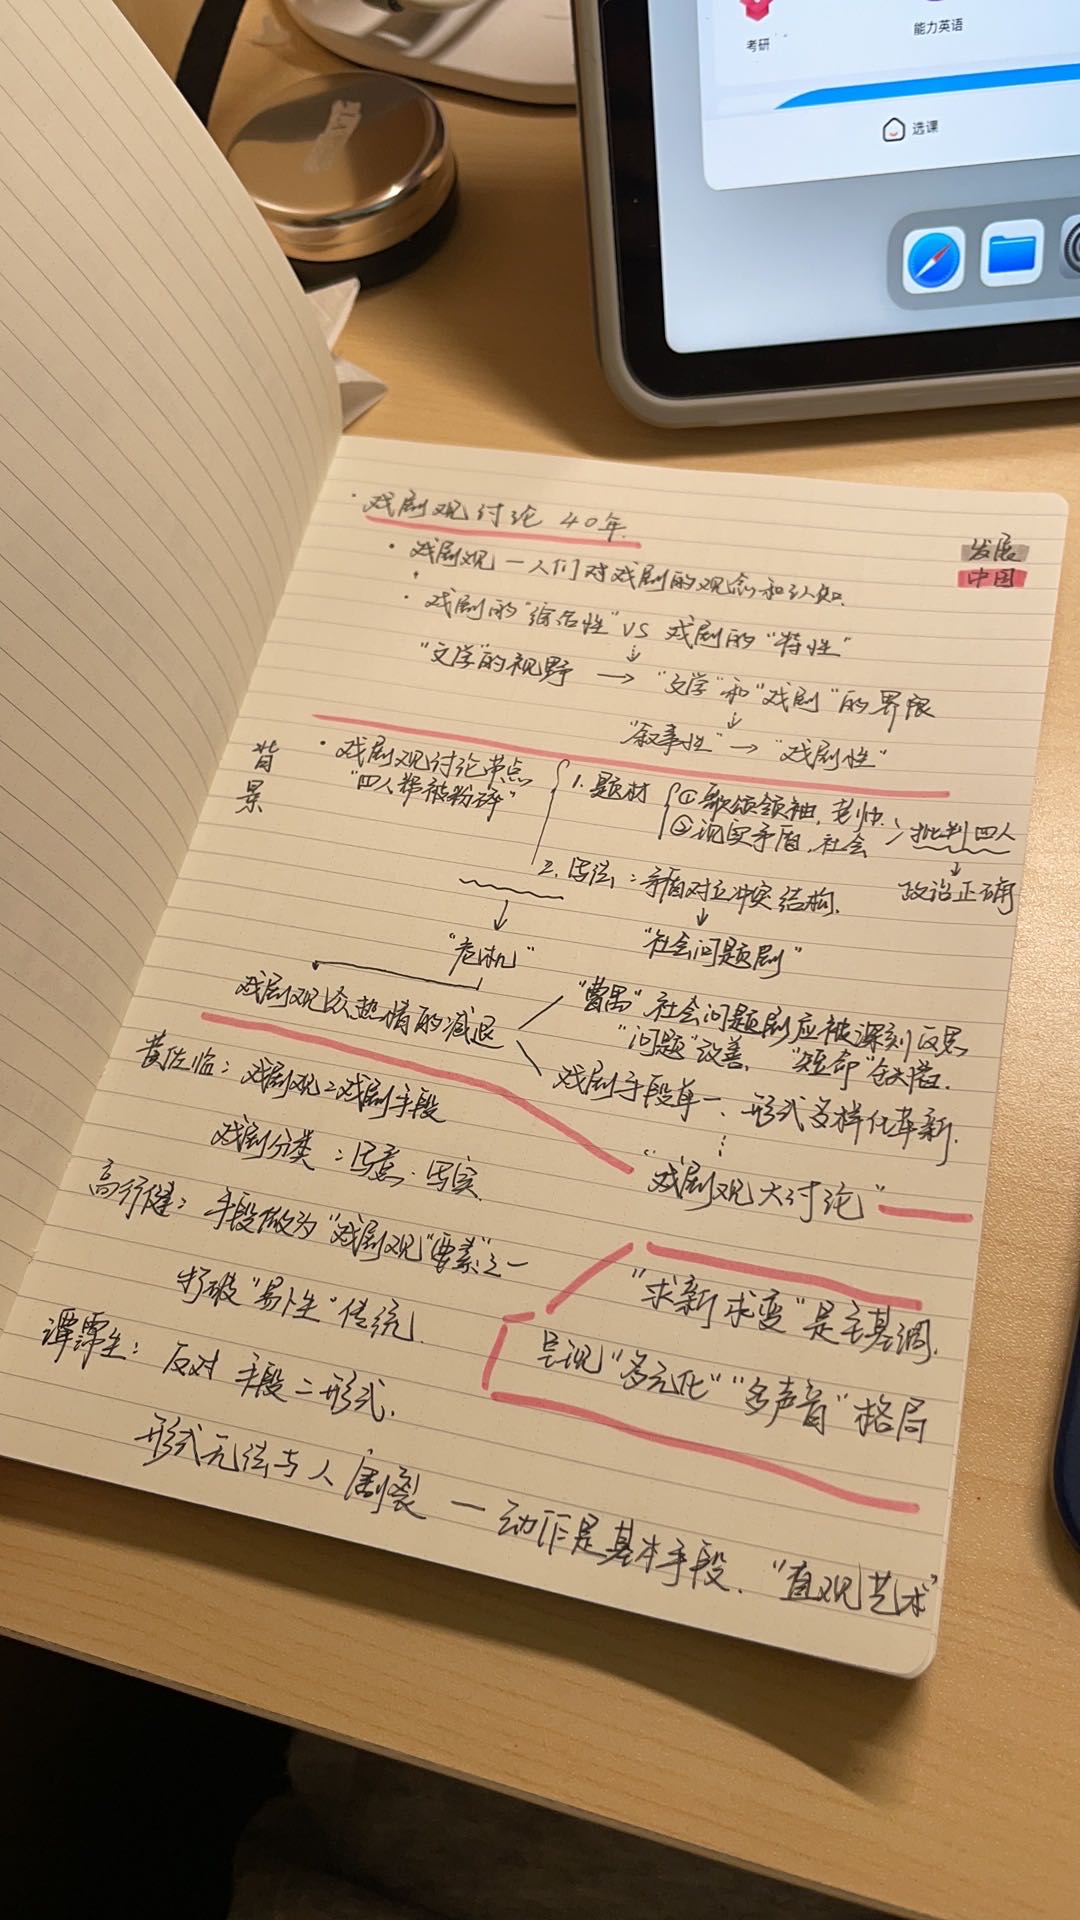 考研
能力英语
选课
·戏剧观讨论 40年.
发展
中国
·戏剧观—人们对戏剧的观念和认知.
·戏剧的"综合性" VS 戏剧的"特性"
↓
"文学"的视野 → "文学"和"戏剧"的界限
↓
"叙事性" → "戏剧性"
背景
·戏剧观讨论节点
"四人帮被粉碎"
1. 题材 ①歌颂领袖,老帅.
②现实矛盾,社会
批判四人
↓
政治正确
2. 写法:矛盾对立冲突结构.
↓
"社会问题剧"
↓
"危机"
戏剧观众热情的减退
"曹禺"社会问题剧应被深刻反思
"问题"改善, "短命"
戏剧手段单一、形式多样化革新.
"戏剧观大讨论"
黄佐临:戏剧观=戏剧手段
戏剧分类:写意.写实.
高行健:手段做为"戏剧观"要素之一
打破"易卜生"传统.
"求新求变"是主基调.
呈现"多元化""多声音"格局
谭霈生:反对 手段=形式.
形式无法与人割裂 — 动作是基本手段. "直观艺术"